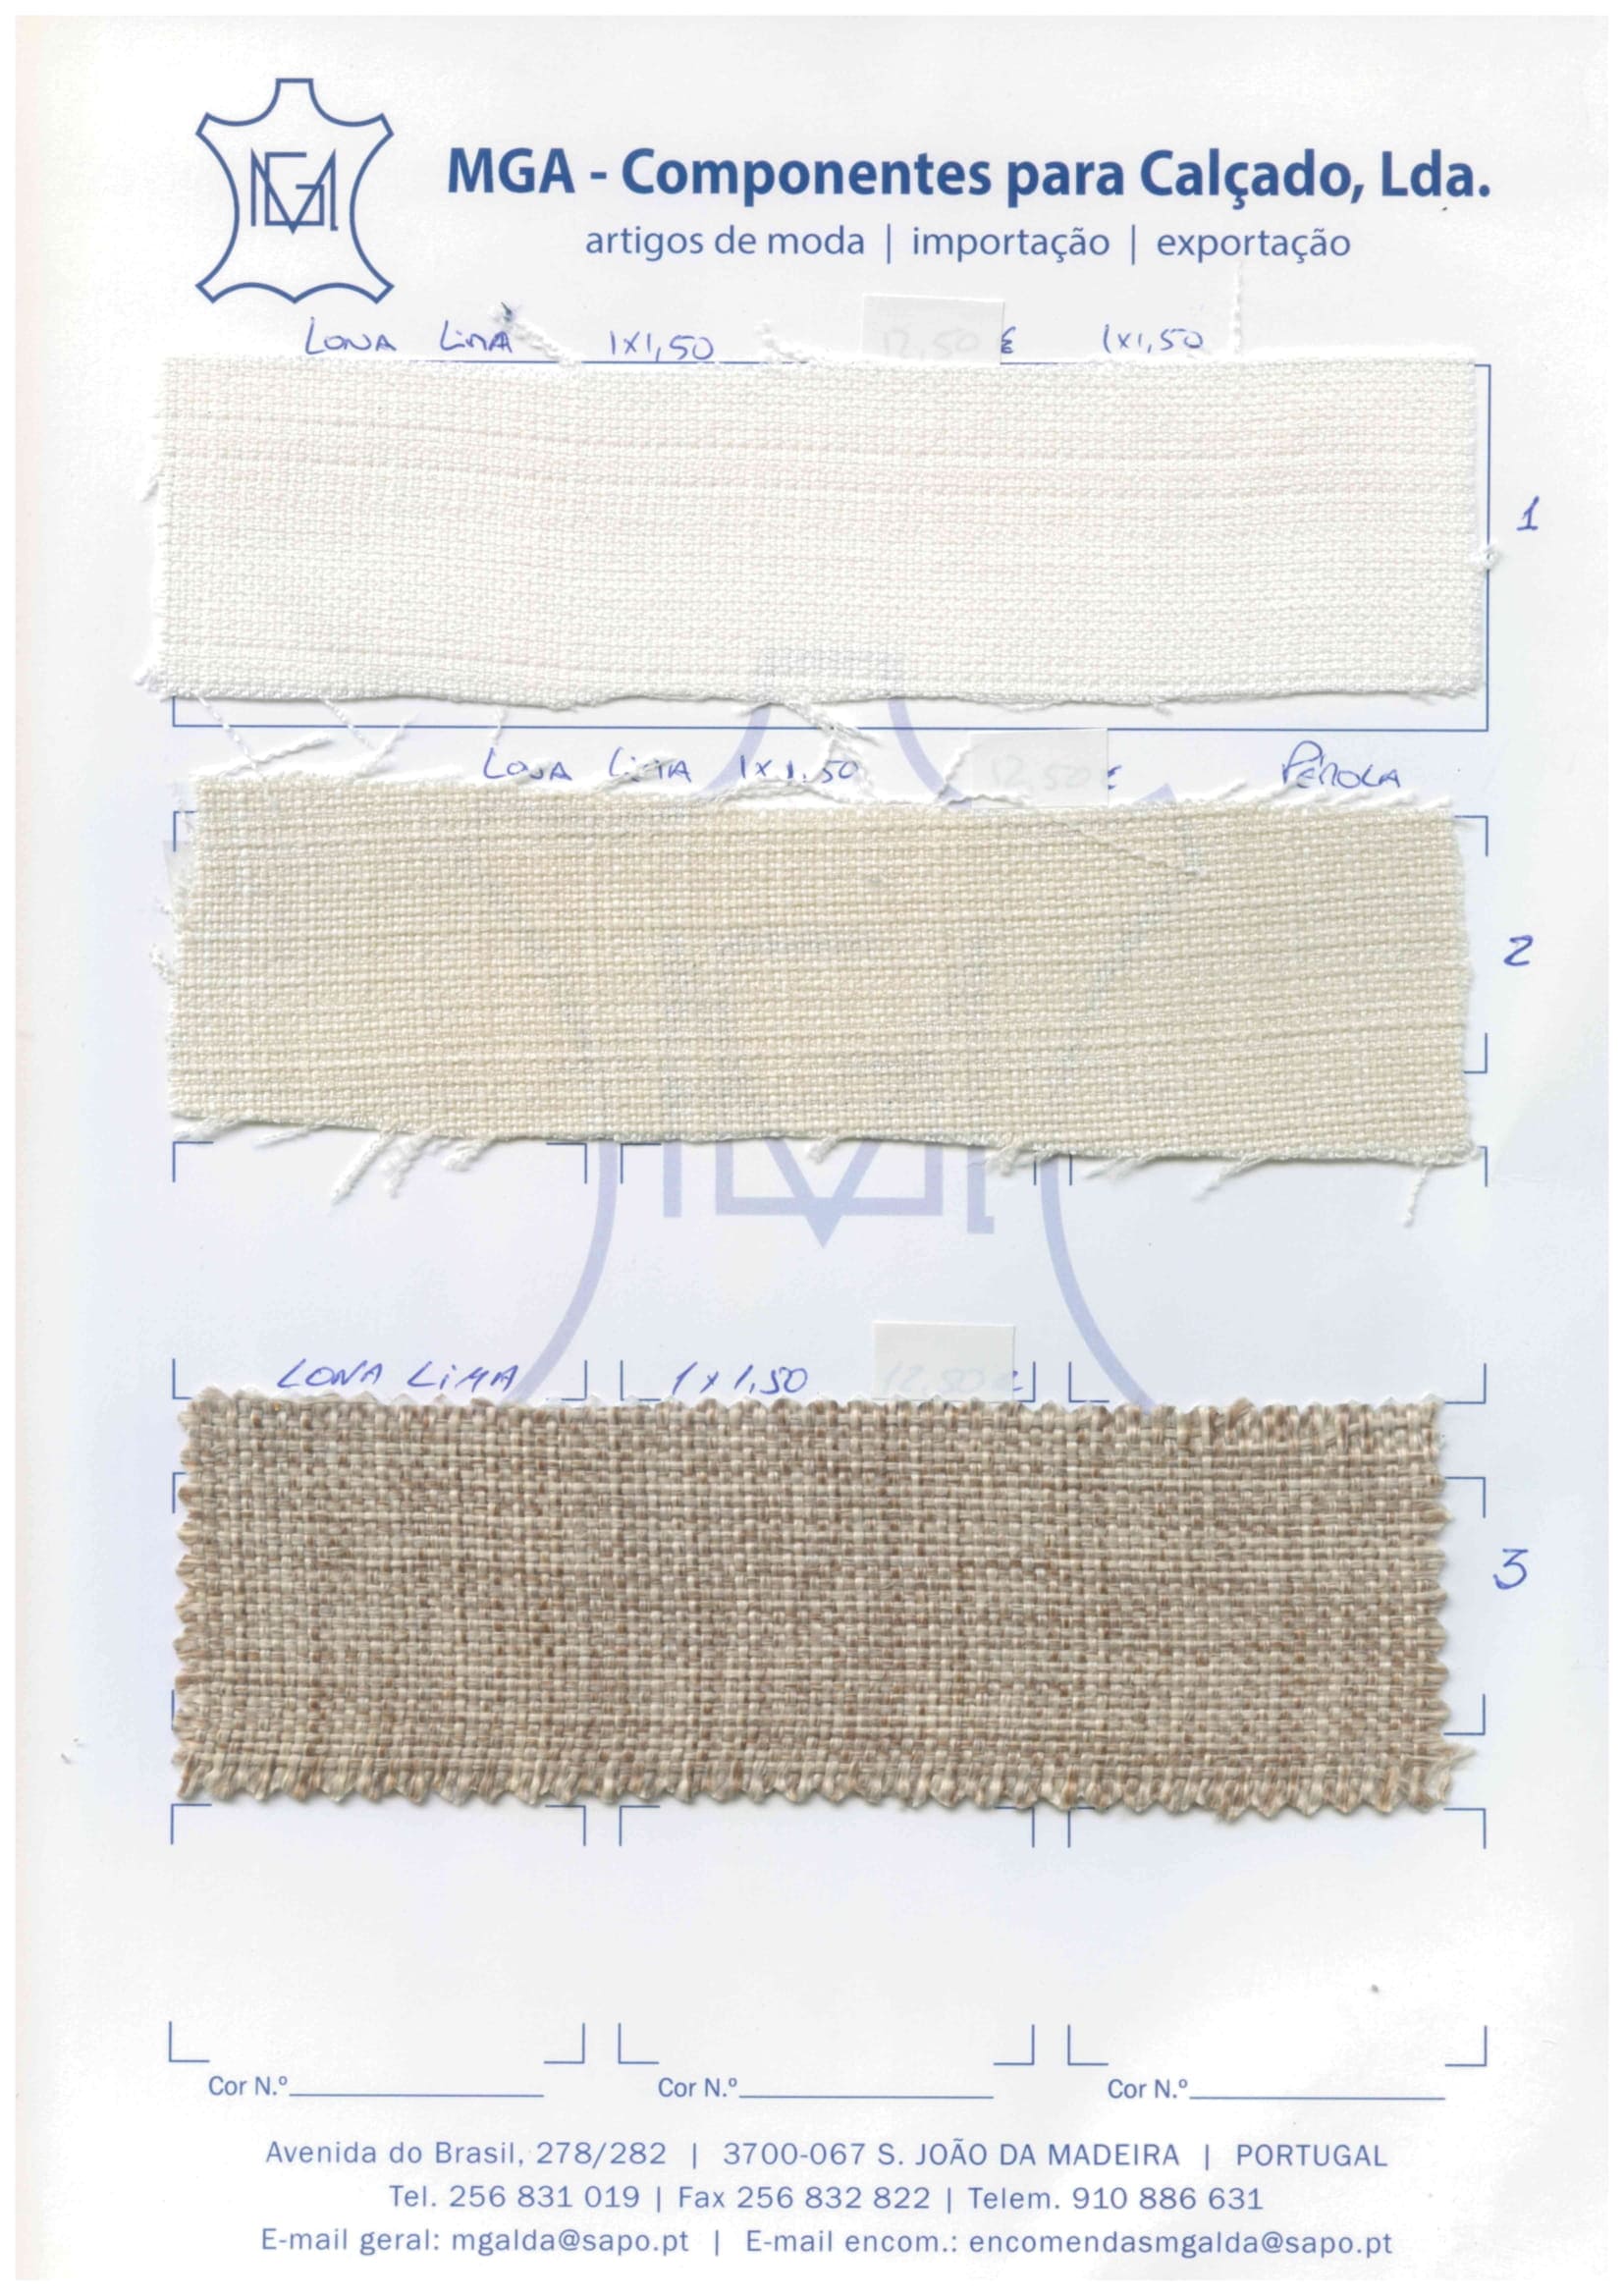 MGA - Componentes para Calçado, Lda.
artigos de moda | importação | exportação
LONA LIMA 1X1,50 12,50 € 1X1,50
1
LONA LIMA 1X1.50 12,50 € PÉROLA
2
LONA LIMA 1X1,50 12,50 €
3
Cor N.º Cor N.º Cor N.º
Avenida do Brasil, 278/282 | 3700-067 S. JOÃO DA MADEIRA | PORTUGAL
Tel. 256 831 019 | Fax 256 832 822 | Telem. 910 886 631
E-mail geral: mgalda@sapo.pt | E-mail encom.: encomendasmgalda@sapo.pt